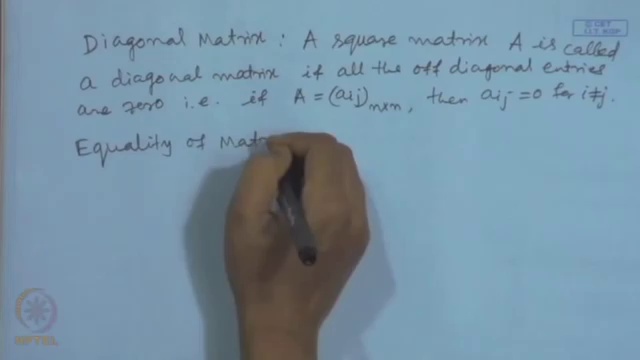 © CET
I.I.T. KGP
Diagonal Matrix : A square matrix A is called
a diagonal matrix if all the off diagonal entries
are zero i.e. if A = (aij)n×n, then aij = 0 for i≠j.
Equality of Mat
NPTEL